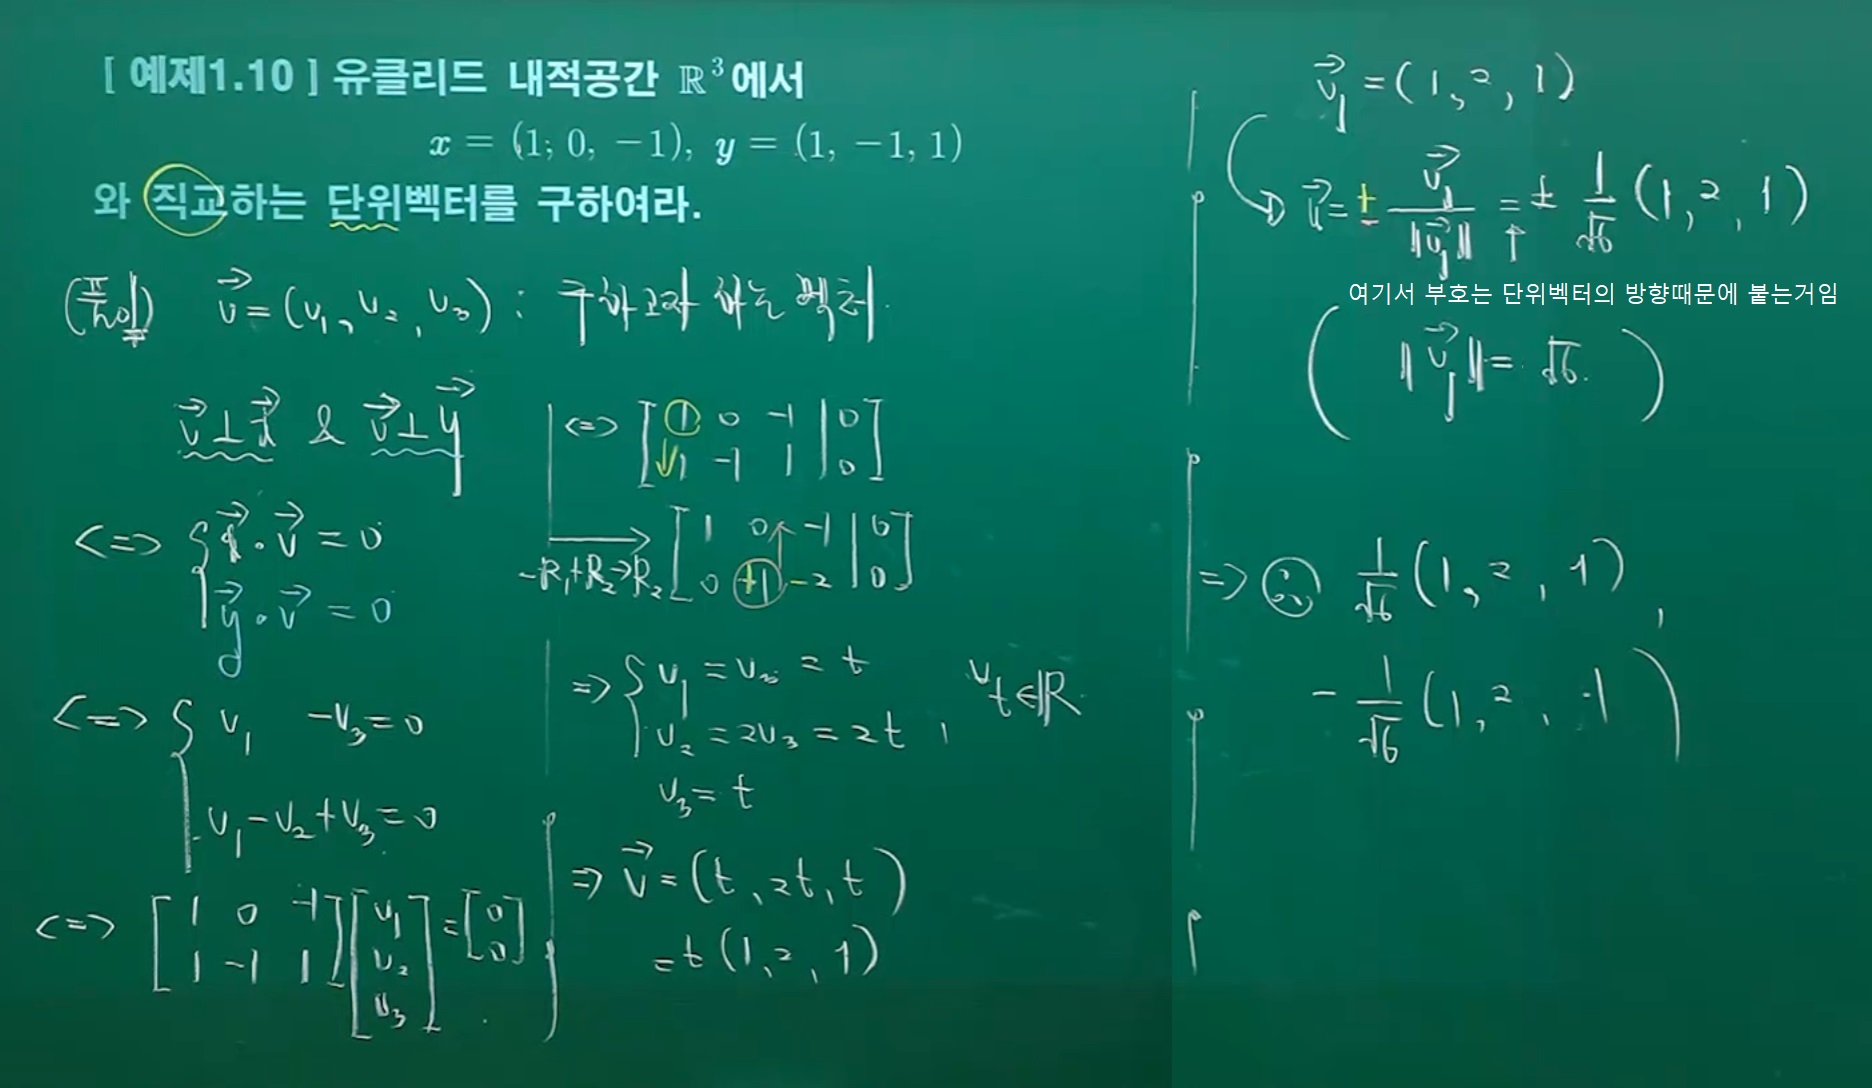 [ 예제1.10 ] 유클리드 내적공간 ℝ³에서
x = (1, 0, −1), y = (1, −1, 1)
와 직교하는 단위벡터를 구하여라.
(풀이) v⃗ = (v₁, v₂, v₃) : 구하고자 하는 벡터.
v⃗ ⊥ x⃗ & v⃗ ⊥ y⃗
<=> { x⃗ · v⃗ = 0
y⃗ · v⃗ = 0
<=> { v₁ −v₃ = 0
v₁ − v₂ + v₃ = 0
<=> [1 0 −1; 1 −1 1] [v₁; v₂; v₃] = [0; 0]
<=> [1 0 −1 | 0; 1 −1 1 | 0]
−R₁+R₂→R₂ [1 0 −1 | 0; 0 +1 −2 | 0]
=> { v₁ = v₃ = t
v₂ = 2v₃ = 2t , ∀t∈ℝ
v₃ = t
=> v⃗ = (t, 2t, t)
= t(1, 2, 1)
v⃗₁ = (1, 2, 1)
u⃗ = ± v⃗₁/‖v⃗₁‖ = ± 1/√6 (1, 2, 1)
여기서 부호는 단위벡터의 방향때문에 붙는거임
( ‖v⃗₁‖ = √6. )
=> ∴ 1/√6 (1, 2, 1) ,
− 1/√6 (1, 2, 1)